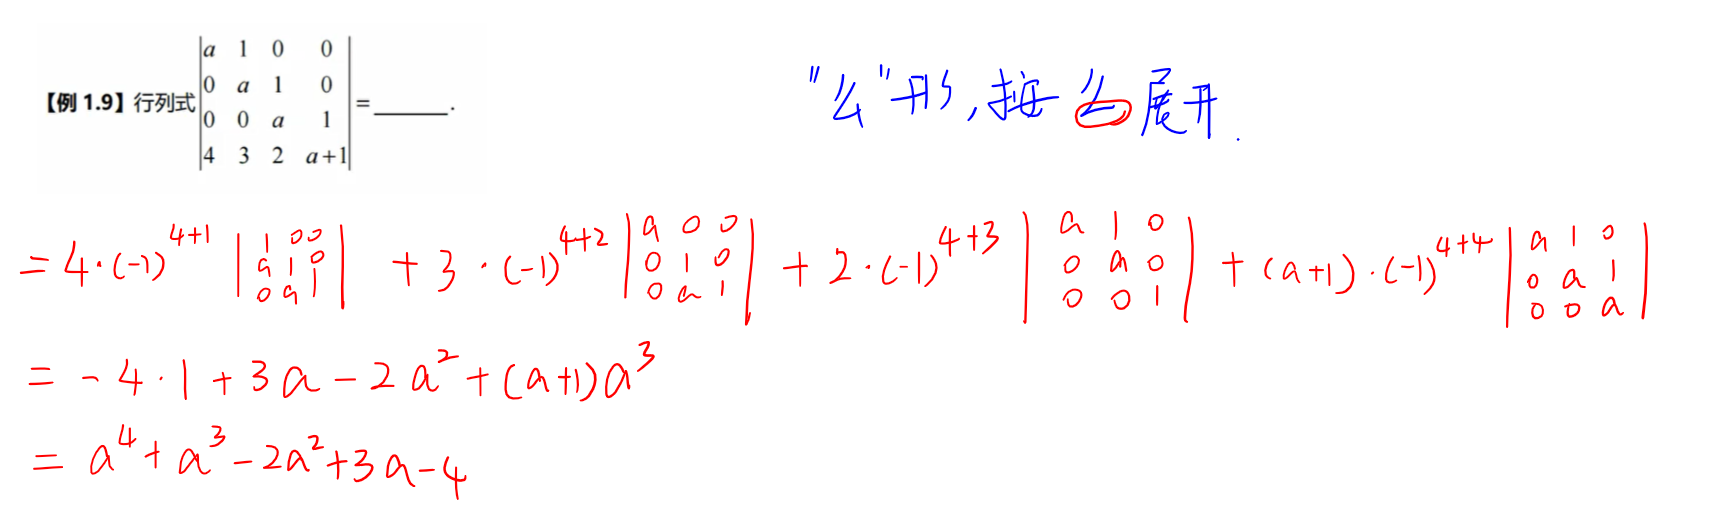 【例 1.9】行列式
|a 1 0 0|
|0 a 1 0|
|0 0 a 1|
|4 3 2 a+1|
=______.
"么"形,按么展开.
=4·(-1)^{4+1} |1 0 0; a 1 0; 0 a 1| + 3·(-1)^{4+2} |a 0 0; 0 1 0; 0 a 1| + 2·(-1)^{4+3} |a 1 0; 0 a 0; 0 0 1| + (a+1)·(-1)^{4+4} |a 1 0; 0 a 1; 0 0 a|
= -4·1+3a-2a²+(a+1)a³
= a⁴+a³-2a²+3a-4